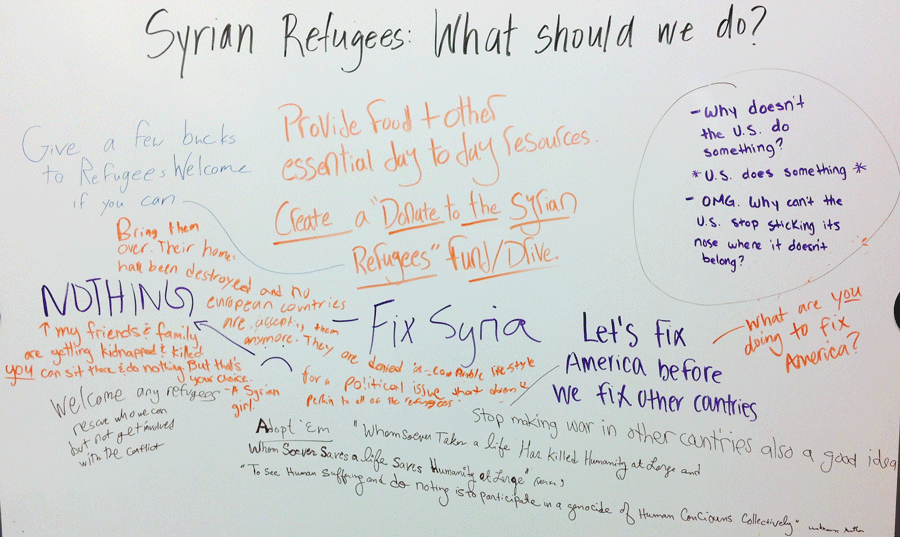 Syrian Refugees: What should we do?
Give a few bucks
to Refugees Welcome
if you can
Provide Food + other
essential day to day resources.
Create a "Donate to the Syrian
Refugees" Fund/Drive.
- Why doesn't
the U.S. do
something?
* U.S. does something *
- OMG. Why can't the
U.S. stop sticking its
nose where it doesn't
belong?
Bring them
over. Their homes
have been destroyed and no
european countries
are accepting them
anymore. They are denied a comfortable lifestyle
for a political issue that doesn't
to all of the refugees.
NOTHING
↑ my friends & family
are getting kidnapped & killed
you can sit there & do nothing But that's
your choice.
-A Syrian
girl
- Fix Syria
Let's fix
America before
we fix other cantries
What are you
doing to fix
America?
Welcome any refugees
rescue who we can
but not get involved
with the conflict
Stop making war in other cantries also a good idea
Adopt 'em
"Whomsoever Taken a life Has Killed Humanity at Large and
Whom Soever Saves a life Saves Humanity at Large"
"To see Human Suffering and do noting is to participate in a genocide of Human Concious Collectively" unknown author